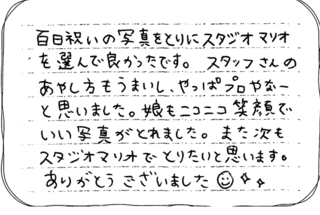 百日祝いの写真をとりにスタジオマリオ
を選んで良かったです。スタッフさんの
あやし方もうまいし、やっぱプロやなー
と思いました。娘もニコニコ笑顔で
いい写真がとれました。また次も
スタジオマリオでとりたいと思います。
ありがとうございました☺✧✧